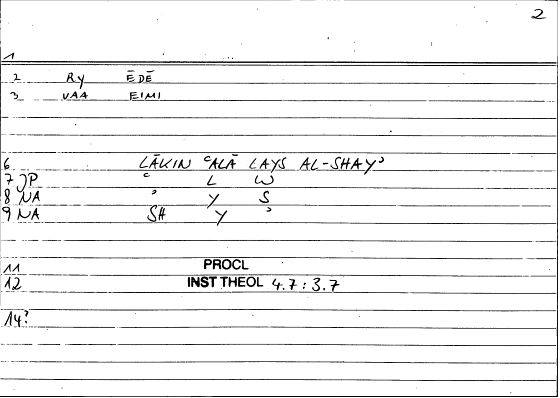 2
1
2 RY ĒDĒ
3 VAA EIMI
6 LĀKIN ʿALĀ LAYS AL-SHAYʾ
7 JP ʿ L W
8 NA ʾ Y S
9 NA SH Y ʾ
11 PROCL
12 INST THEOL 4.7:3.7
14?